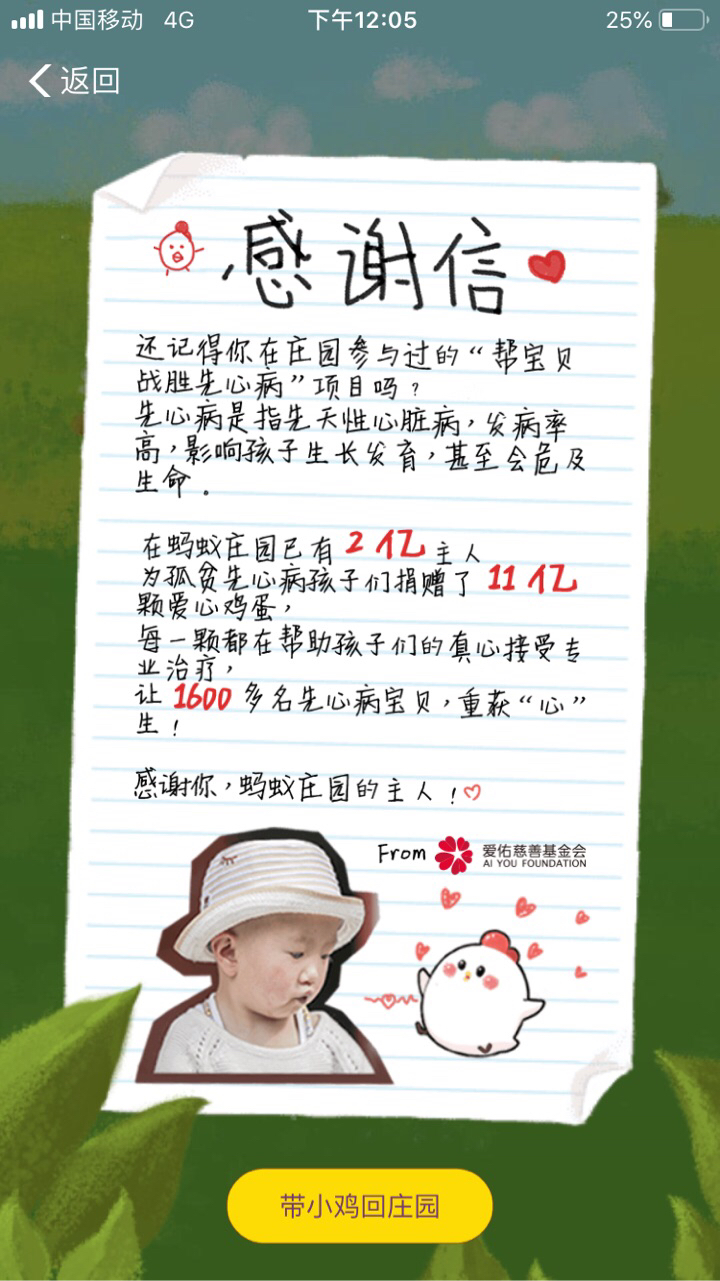 中国移动 4G 下午12:05 25%
返回
感谢信
还记得你在庄园参与过的“帮宝贝
战胜先心病”项目吗？
先心病是指先天性心脏病，发病率
高，影响孩子生长发育，甚至会危及
生命．
在蚂蚁庄园已有 2亿 主人
为孤贫先心病孩子们捐赠了 11亿
颗爱心鸡蛋，
每一颗都在帮助孩子们的真心接受专
业治疗，
让 1600 多名先心病宝贝，重获“心”
生！
感谢你，蚂蚁庄园的主人！
From 爱佑慈善基金会
AI YOU FOUNDATION
带小鸡回庄园